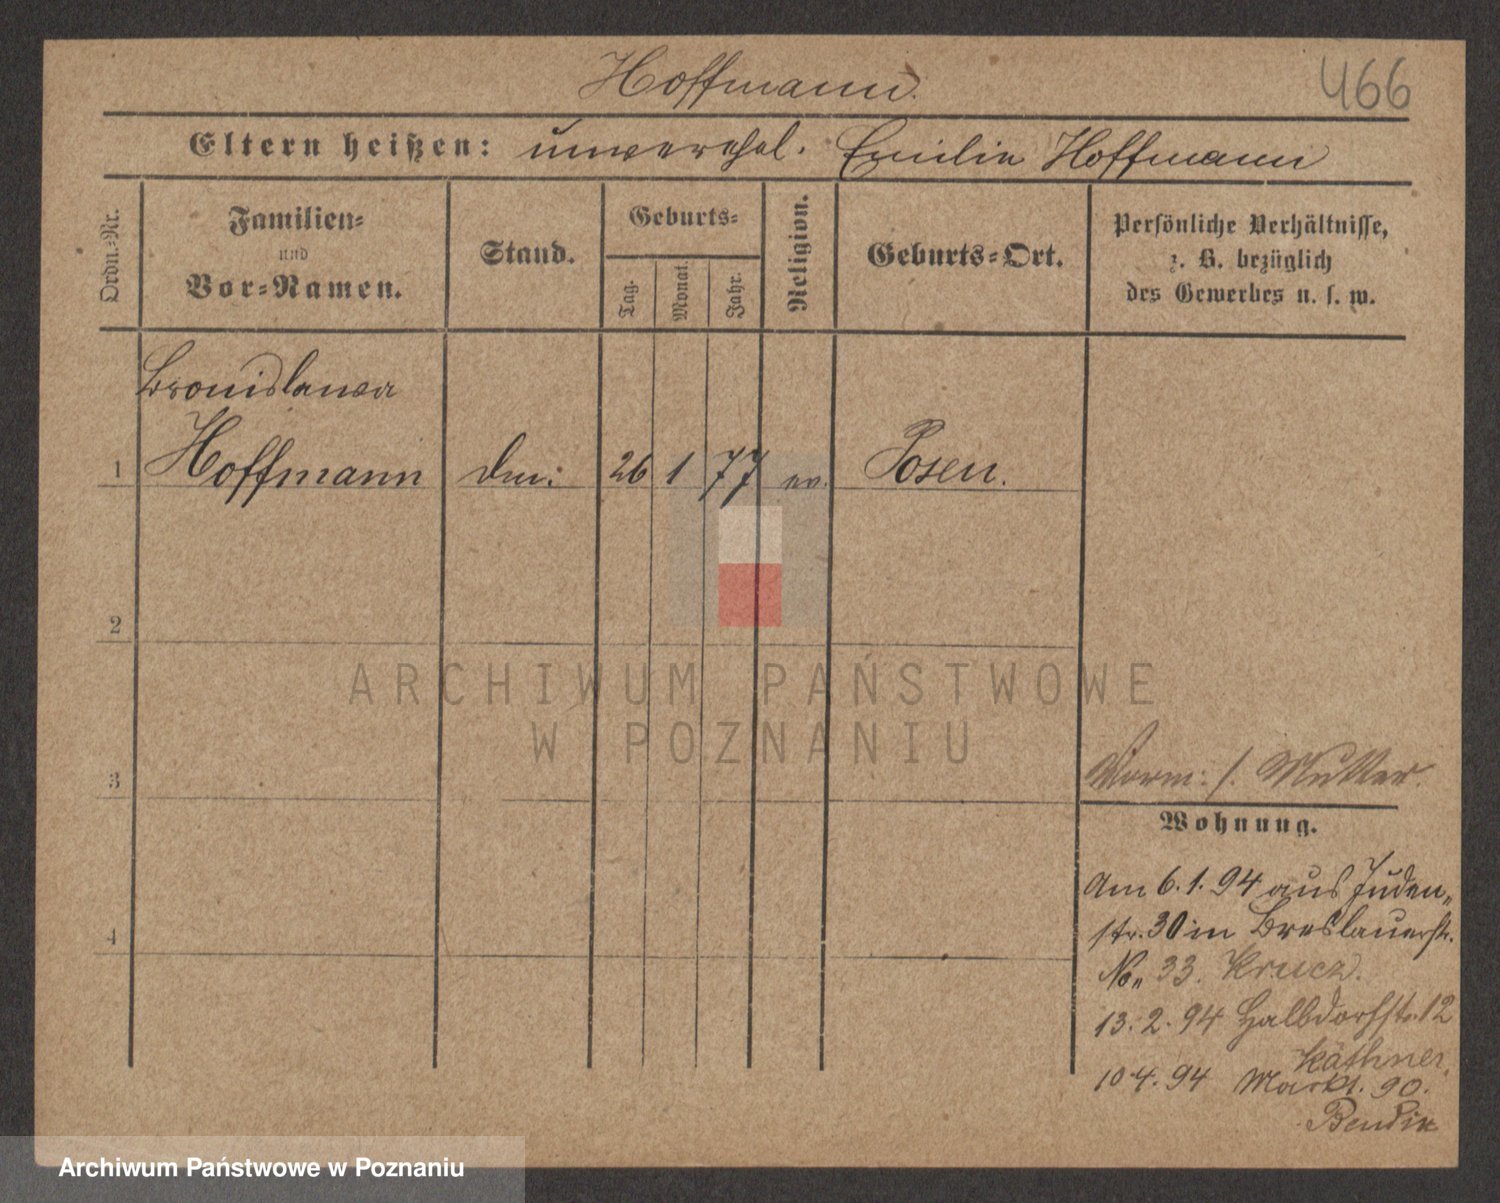 Hoffmann.
466
Eltern heißen: unverehel. Emilie Hoffmann
Ordn.=Nr.
Familien=
und
Vor=Namen.
Stand.
Geburts=
Tag.
Monat.
Jahr.
Religion.
Geburts=Ort.
Persönliche Verhältnisse,
z. B. bezüglich
des Gewerbes u. s. w.
Bronislawa
1 Hoffmann 26 1 77 ev. Posen.
2
3
4
ARCHIWUM PAŃSTWOWE
W POZNANIU
Vorm: s. Mutter.
Wohnung.
Am 6. 1. 94 aus Juden„
str. 30 in Breslauerstr.
No„ 33. Krucz.
13. 2. 94 Halbdorfstr. 12
Käthner.
10 4. 94 Markt. 90.
Bendix
Archiwum Państwowe w Poznaniu